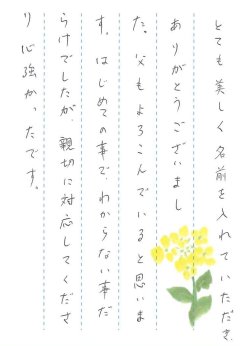 とても美しく名前を入れていただき
ありがとうございまし
た。父もよろこんでいると思いま
す。はじめての事でわからない事だ
らけでしたが、親切に対応してくださ
り心強かったです。